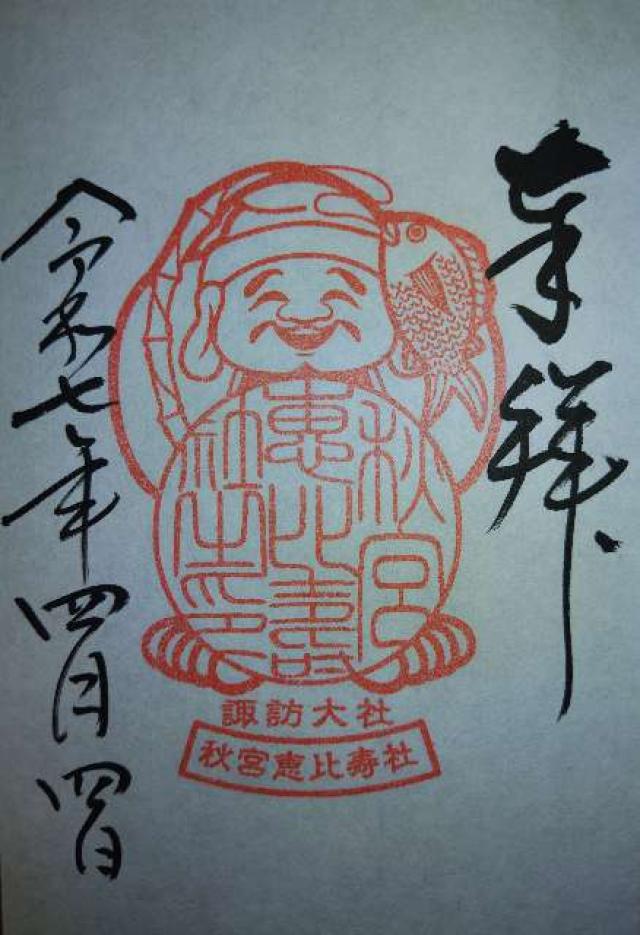 奉拝
秋宮
恵比寿
社之印
諏訪大社
秋宮恵比寿社
令和七年四月四日